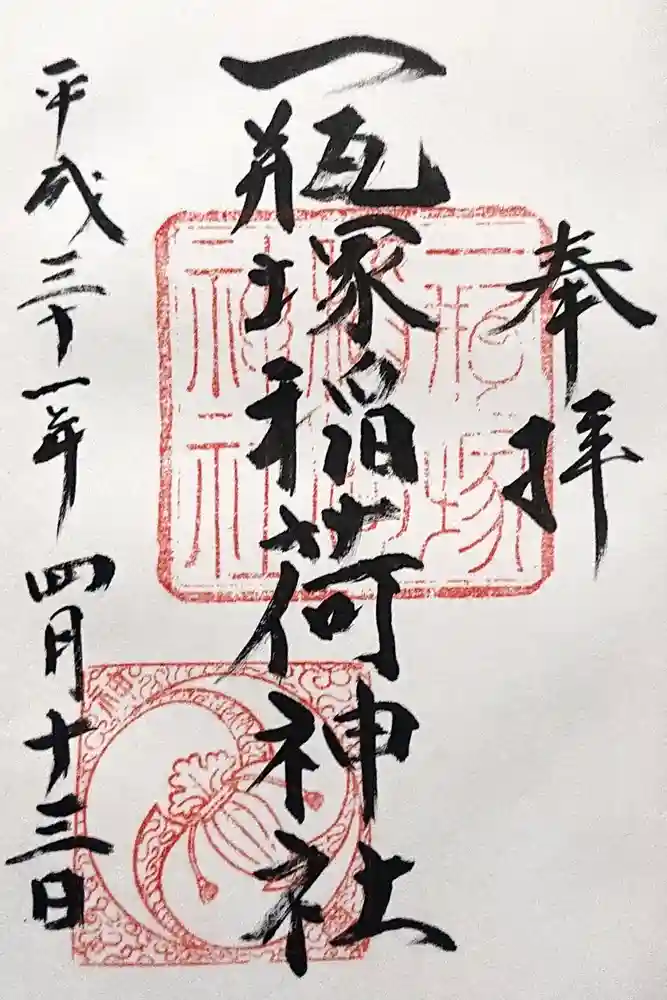 奉拝
一瓶塚稲荷神社
平成三十一年四月十三日